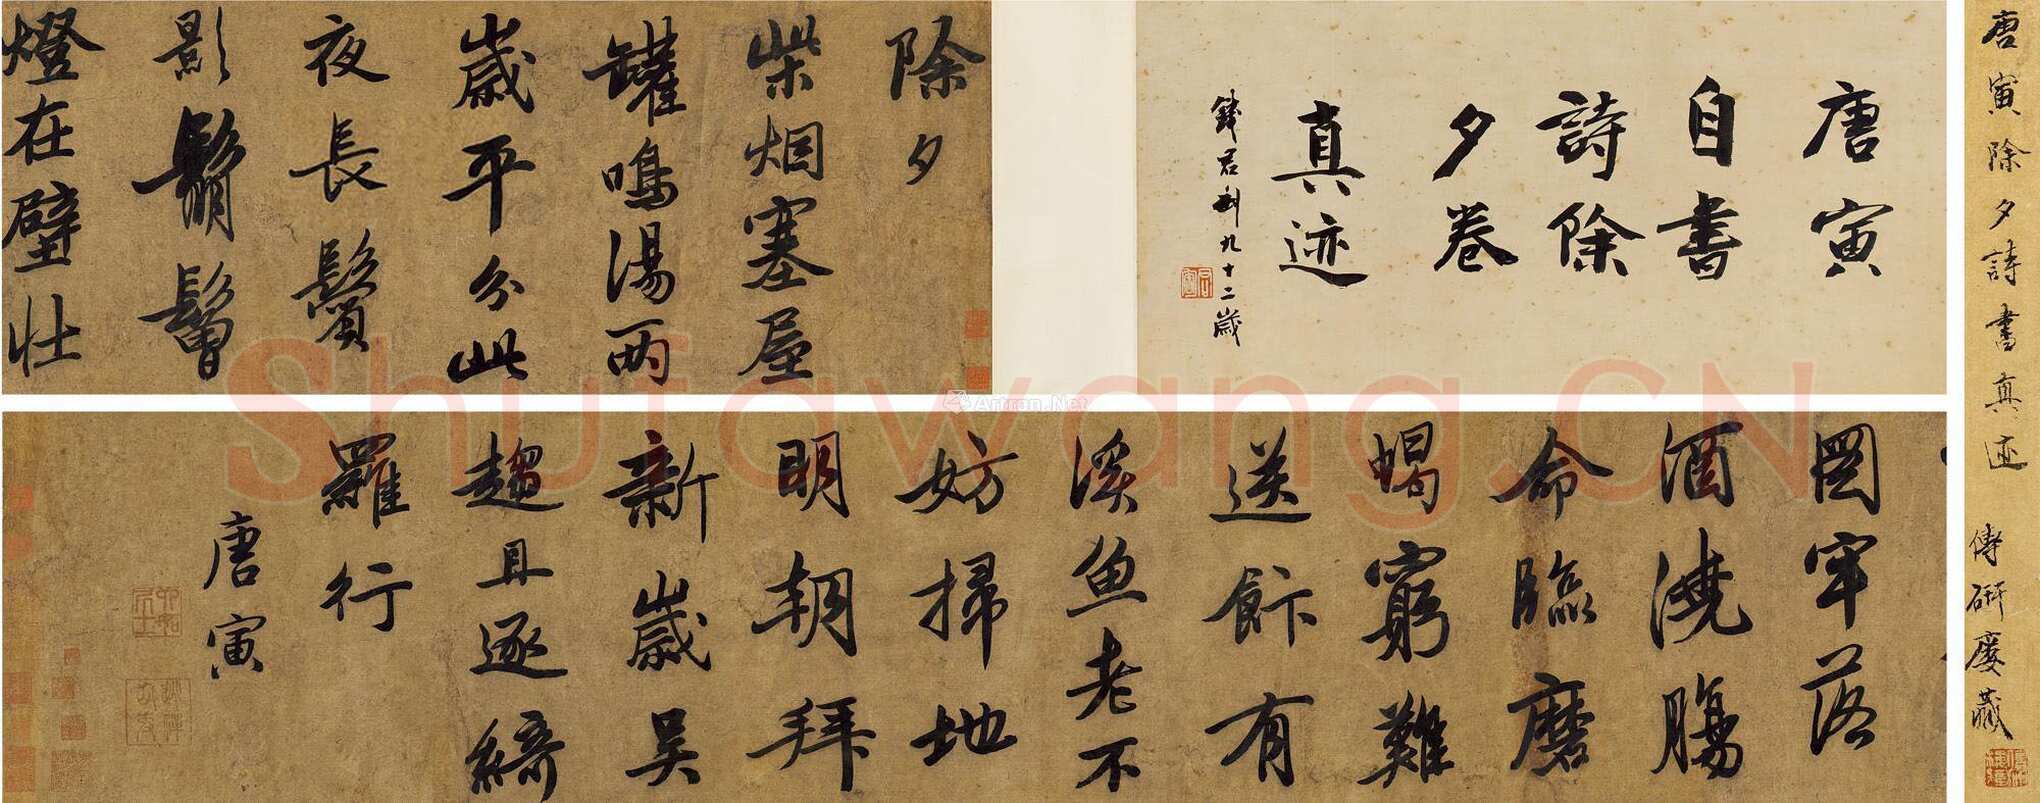 唐寅除夕詩書真迹
傅硏廔藏
唐寅
自書
詩除
夕卷
真迹
錢君匋九十二歲
除夕
柴烟塞屋
罐鳴湯兩
歲平分此
夜長鬢
影鬅鬙
燈在壁壮
圖牢落
酒澆腸
命臨磨
蝎窮難
送餘有
溪魚老不
妨掃地
明朝拜
新歲吴
趨且逐綺
羅行
唐寅
Shufawang.CN
Artron.Net